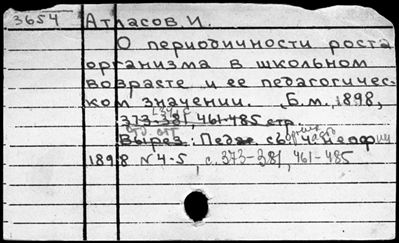 3654 Атласов И.
О периодичности роста
организма в школьном
возрасте и ее педагогичес-
ком значении. Б.м., 1898,
373-381, 461-485 стр.
отд. отт.
Вырез.: Педаг. сб
1898 №4-5, с. 373-381, 461-485